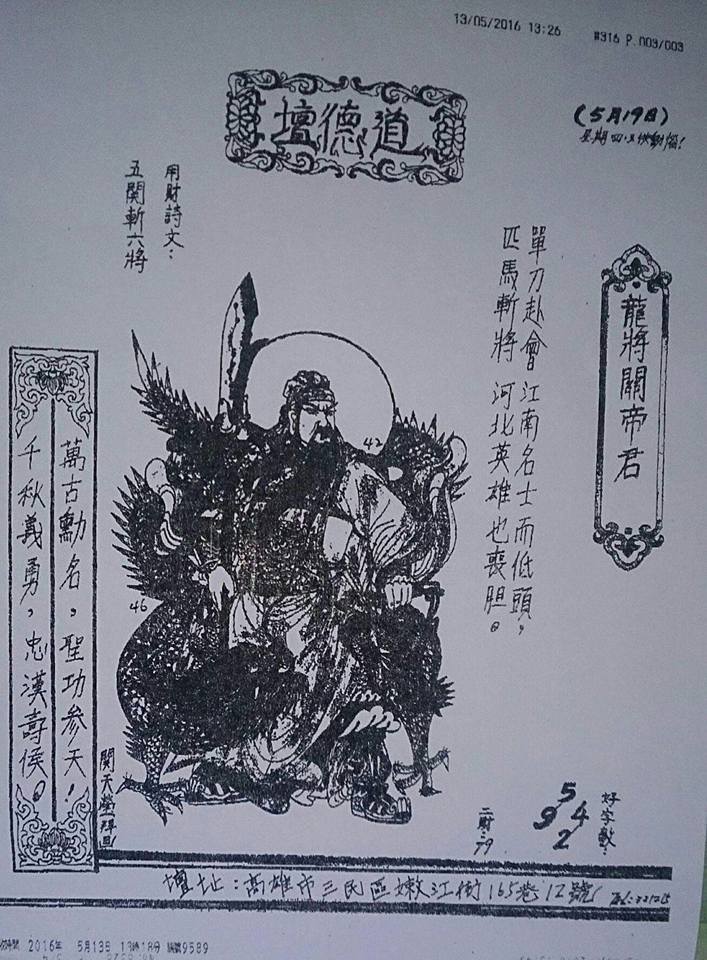 13/05/2016 13:26 #316 P.003/003
道德壇
(5月19日)
龍將關帝君
單刀赴會 江南名士而低頭,
匹馬斬將 河北英雄也喪胆。
用財詩文:
五關斬六將
42
46
萬古勳名,聖功參天!
千秋義勇,忠漢壽侯。
好字數:
5
9 4
2
二財:79
壇址:高雄市三民區嫩江街165巷12號
2016年 5月13日 13時18分 編號9589